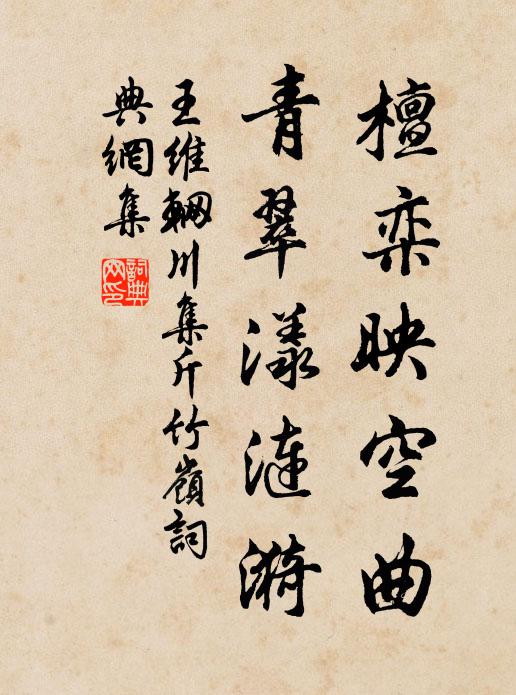 檀奕映空曲
青翠漾涟漪
王维輞川集斤竹嶺詞
典網集
詞典
网印